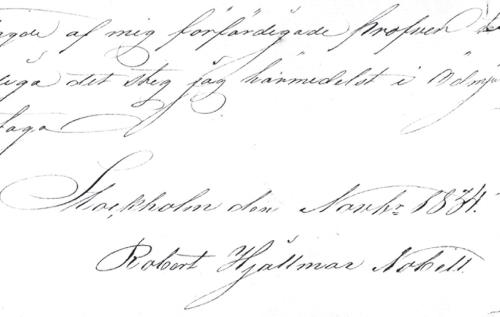 af mig förfärdigade profwen
det steg jag härmedelst i Ödmju
taga
Stockholm den Novbr 1834.
Robert Hjallmar Nobell